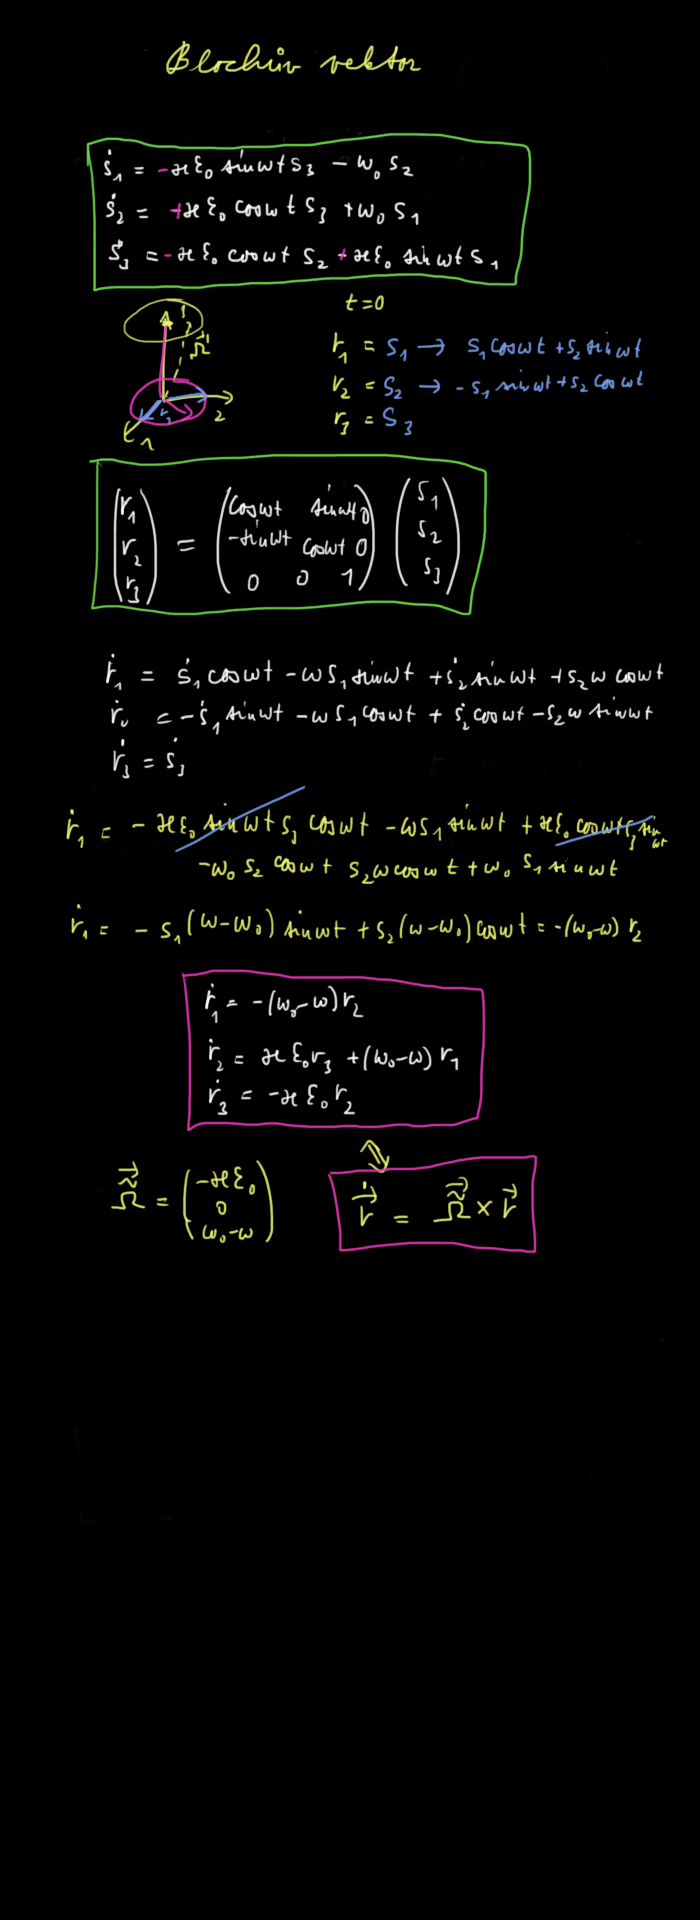 Blochův vektor
ṡ₁ = -ϰℰ₀ sinωt s₃ - ω₀ s₂
ṡ₂ = +ϰℰ₀ cosωt s₃ + ω₀ s₁
ṡ₃ = -ϰℰ₀ cosωt s₂ + ϰℰ₀ sinωt s₁
t=0
r₁ = s₁ → s₁cosωt + s₂ sinωt
r₂ = s₂ → -s₁ sinωt + s₂ cosωt
r₃ = s₃
3
Ω⃗
2
1
(r₁ r₂ r₃) = (cosωt sinωt 0 -sinωt cosωt 0 0 0 1) (s₁ s₂ s₃)
ṙ₁ = ṡ₁cosωt - ωs₁sinωt + ṡ₂sinωt + s₂ω cosωt
ṙ₂ = -ṡ₁sinωt - ωs₁cosωt + ṡ₂cosωt - s₂ω sinωt
ṙ₃ = ṡ₃
ṙ₁ = -ϰℰ₀ sinωt s₃ cosωt - ωs₁sinωt + ϰℰ₀ cosωt s₃ sinωt
-ω₀ s₂ cosωt s₂ωcosωt + ω₀ s₁ sinωt
ṙ₁ = -s₁(ω-ω₀) sinωt + s₂(ω-ω₀)cosωt = -(ω₀-ω) r₂
ṙ₁ = -(ω₀-ω)r₂
ṙ₂ = ϰℰ₀r₃ + (ω₀-ω) r₁
ṙ₃ = -ϰℰ₀r₂
Ω̃⃗ = (-ϰℰ₀ 0 ω₀-ω)
⇓
ṙ⃗ = Ω̃⃗ × r⃗